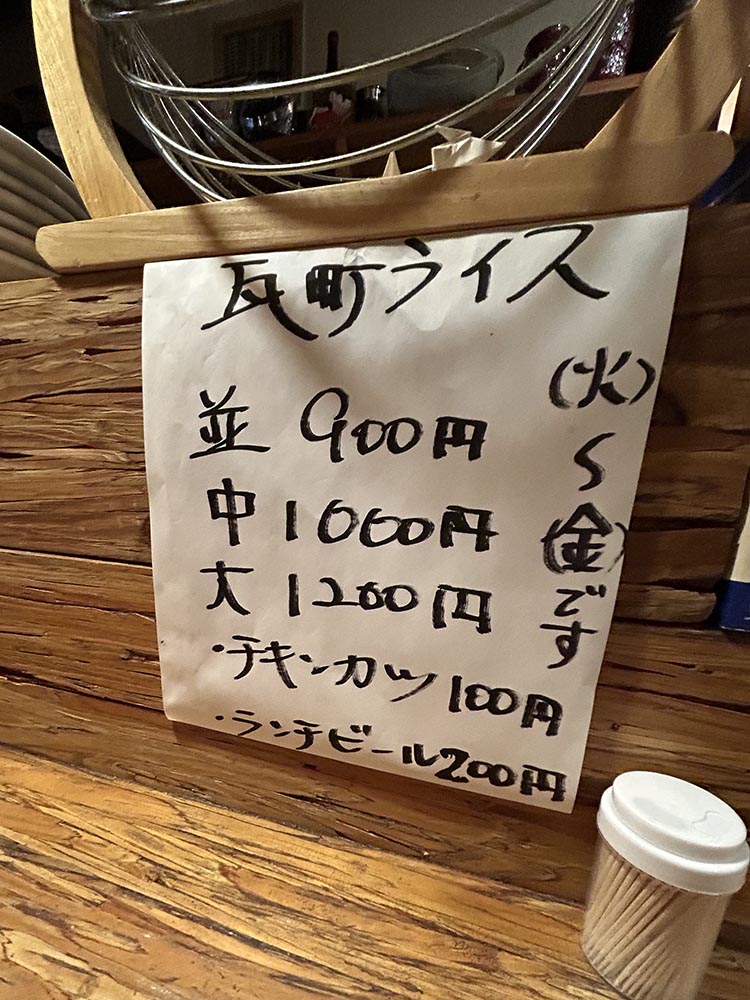 瓦町ライス
並 900円
中 1000円
大 1200円
・チキンカツ 100円
・ランチビール 200円
(火)〜(金)です